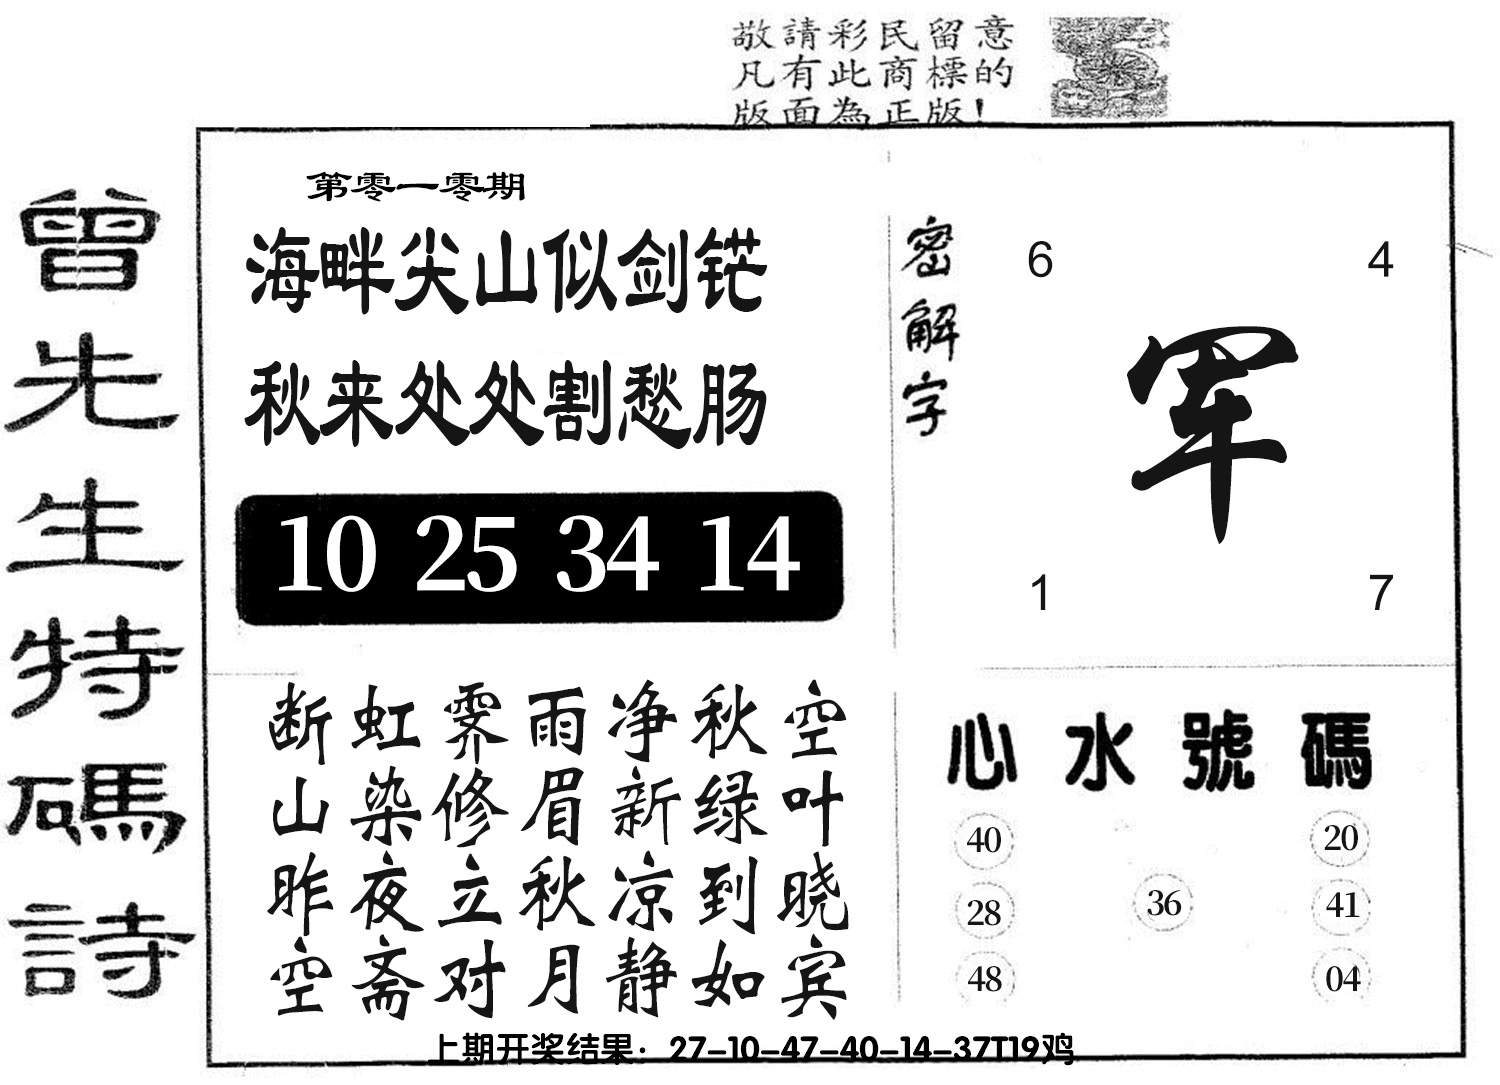 敬請彩民留意
凡有此商標的
版面為正版!
曾先生特碼詩
第零一零期
海畔尖山似剑铓
秋来处处割愁肠
10 25 34 14
密解字
6 4
军
1 7
断虹霁雨净秋空
山染修眉新绿叶
昨夜立秋凉到晓
空斋对月静如宾
心水號碼
40 20
36
28 41
48 04
上期开奖结果：27-10-47-40-14-37T19鸡